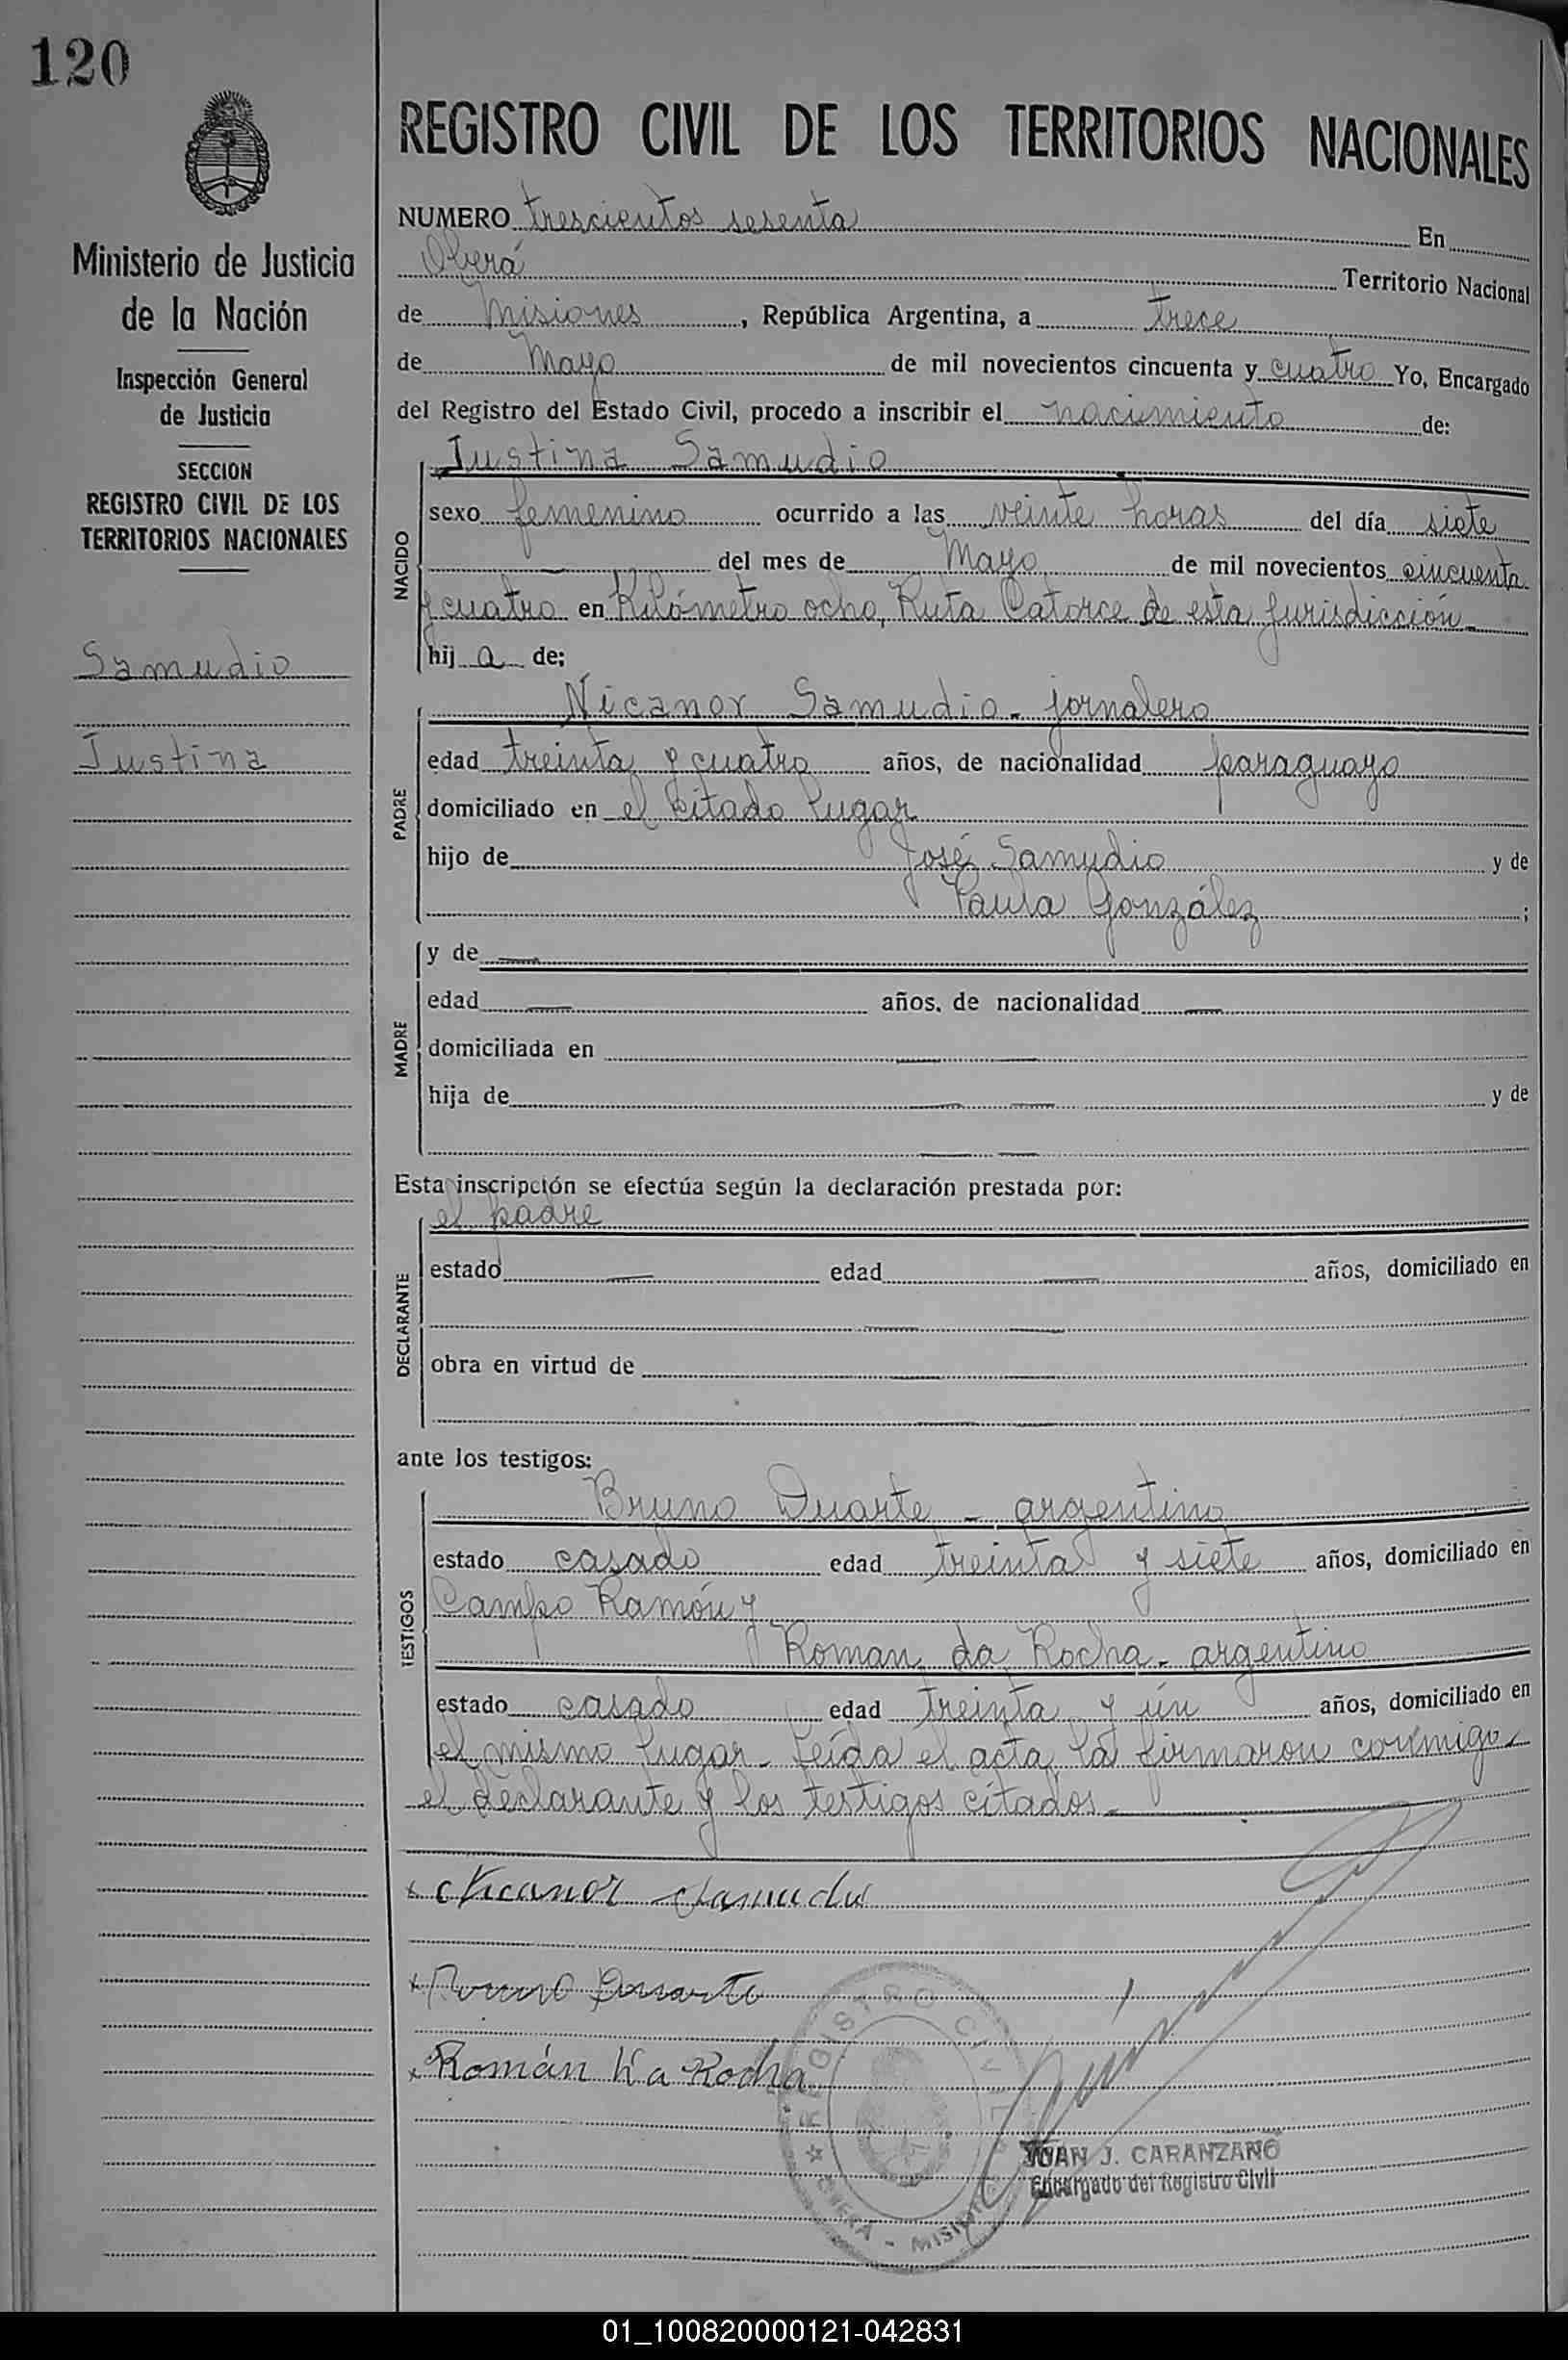 120
Ministerio de Justicia
de la Nación
Inspección General
de Justicia
SECCION
REGISTRO CIVIL DE LOS
TERRITORIOS NACIONALES
Samudio
Justina
REGISTRO CIVIL DE LOS TERRITORIOS NACIONALES
NUMERO trescientos sesenta En
Oberá Territorio Nacional
de Misiones, República Argentina, a trece
de Mayo de mil novecientos cincuenta y cuatro Yo, Encargado
del Registro del Estado Civil, procedo a inscribir el nacimiento de:
Justina Samudio
NACIDO
sexo femenino ocurrido a las veinte horas del día siete
— del mes de Mayo de mil novecientos cincuenta
y cuatro en Kilómetro ocho, Ruta Catorce de esta Jurisdicción-
hij a de:
Nicanor Samudio - jornalero
PADRE
edad treinta y cuatro años, de nacionalidad paraguayo
domiciliado en el citado lugar
hijo de José Samudio y de
Paula González ;
MADRE
y de —
edad — años, de nacionalidad —
domiciliada en — —
hija de — — y de
— —
Esta inscripción se efectúa según la declaración prestada por:
el padre
DECLARANTE
estado — edad — años, domiciliado en
— —
obra en virtud de — —
— —
ante los testigos:
TESTIGOS
Bruno Duarte - argentino
estado casado edad treinta y siete años, domiciliado en
Campo Ramón y
Roman da Rocha - argentino
estado casado edad treinta y ún años, domiciliado en
el mismo lugar - Leída el acta, la firmaron conmigo
el declarante y los testigos citados -
x Nicanor Samudio
x Bruno Duarte
x Román Da Rocha
REGISTRO CIVIL
OBERA - MISIONES
JUAN J. CARANZANO
Encargado del Registro Civil
01_100820000121-042831